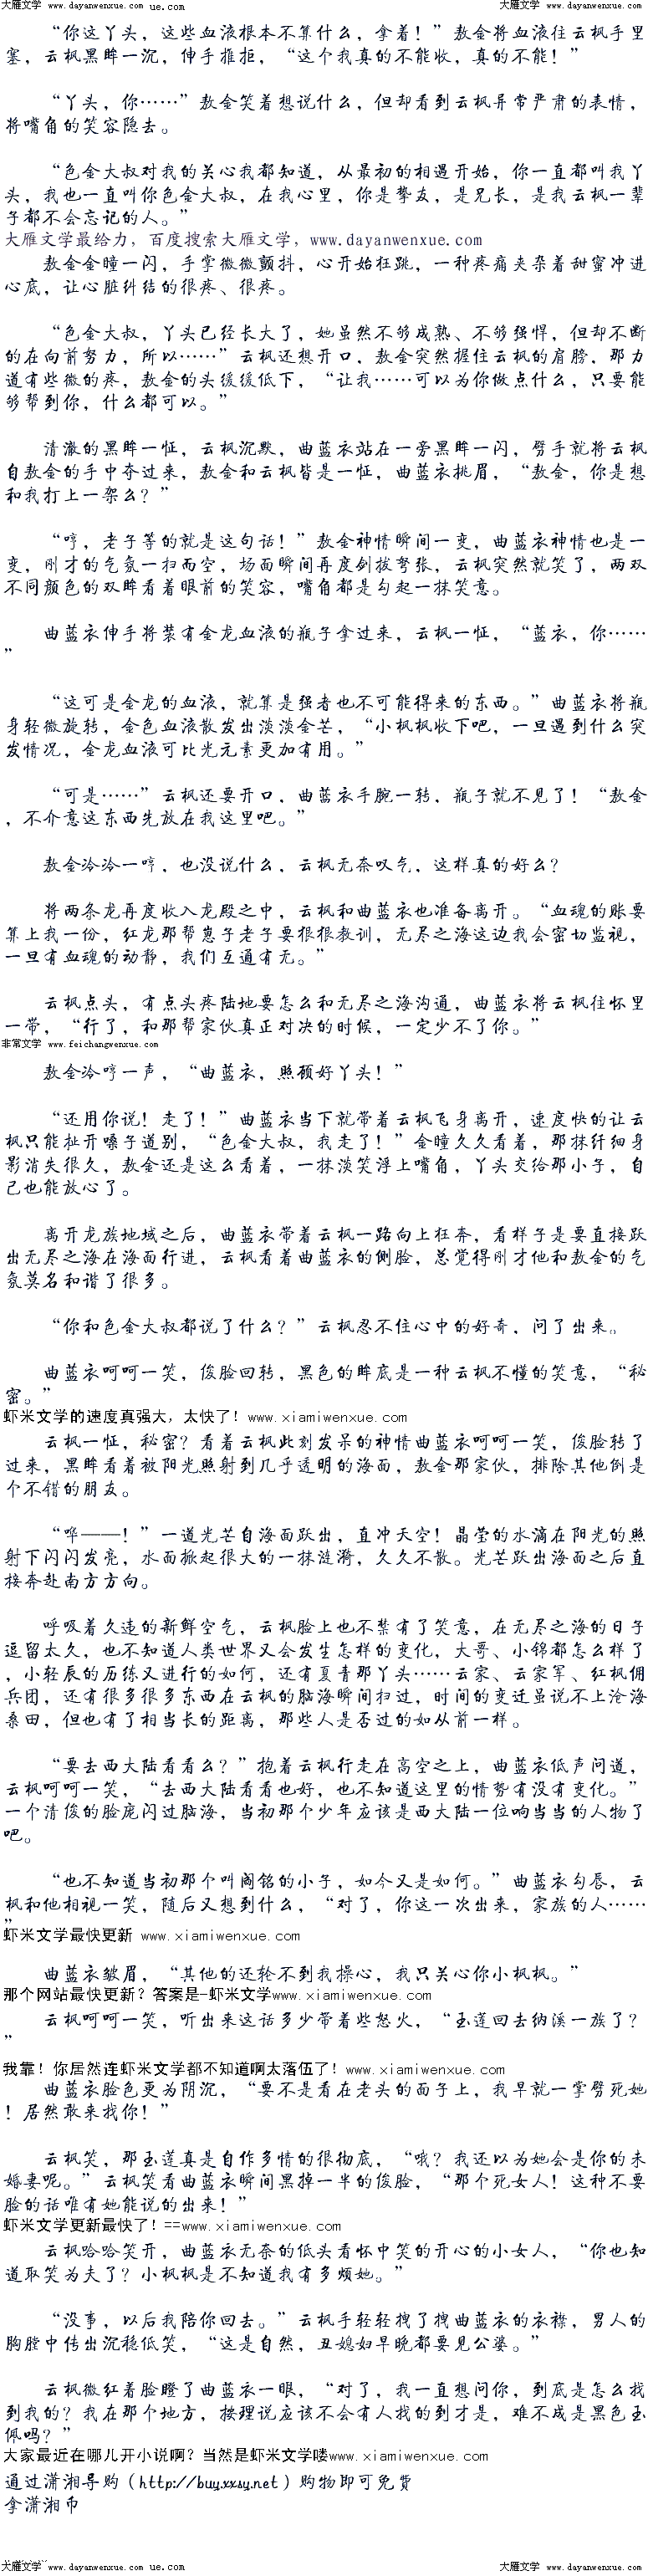 大雁文学 www.dayanwenxue.com ue.com 大雁文学 www.dayanwenxue.com
“你这丫头，这些血液根本不算什么，拿着！”敖金将血液往云枫手里
塞，云枫黑眸一沉，伸手推拒，“这个我真的不能收，真的不能！”
“丫头，你……”敖金笑着想说什么，但却看到云枫异常严肃的表情，
将嘴角的笑容隐去。
“色金大叔对我的关心我都知道，从最初的相遇开始，你一直都叫我丫
头，我也一直叫你色金大叔，在我心里，你是挚友，是兄长，是我云枫一辈
子都不会忘记的人。”
大雁文学最给力，百度搜索大雁文学，www.dayanwenxue.com
敖金金瞳一闪，手掌微微颤抖，心开始狂跳，一种疼痛夹杂着甜蜜冲进
心底，让心脏纠结的很疼、很疼。
“色金大叔，丫头已经长大了，她虽然不够成熟、不够强悍，但却不断
的在向前努力，所以……”云枫还想开口，敖金突然握住云枫的肩膀，那力
道有些微的疼，敖金的头缓缓低下，“让我……可以为你做点什么，只要能
够帮到你，什么都可以。”
清澈的黑眸一怔，云枫沉默，曲蓝衣站在一旁黑眸一闪，劈手就将云枫
自敖金的手中夺过来，敖金和云枫皆是一怔，曲蓝衣挑眉，“敖金，你是想
和我打上一架么？”
“哼，老子等的就是这句话！”敖金神情瞬间一变，曲蓝衣神情也是一
变，刚才的气氛一扫而空，场面瞬间再度剑拔弩张，云枫突然就笑了，两双
不同颜色的双眸看着眼前的笑容，嘴角都是勾起一抹笑意。
曲蓝衣伸手将装有金龙血液的瓶子拿过来，云枫一怔，“蓝衣，你……
”
“这可是金龙的血液，就算是强者也不可能得来的东西。”曲蓝衣将瓶
身轻微旋转，金色血液散发出淡淡金芒，“小枫枫收下吧，一旦遇到什么突
发情况，金龙血液可比光元素更加有用。”
“可是……”云枫还要开口，曲蓝衣手腕一转，瓶子就不见了！“敖金
，不介意这东西先放在我这里吧。”
敖金冷冷一哼，也没说什么，云枫无奈叹气，这样真的好么？
将两条龙再度收入龙殿之中，云枫和曲蓝衣也准备离开。“血魂的账要
算上我一份，红龙那帮崽子老子要狠狠教训，无尽之海这边我会密切监视，
一旦有血魂的动静，我们互通有无。”
云枫点头，有点头疼陆地要怎么和无尽之海沟通，曲蓝衣将云枫往怀里
一带，“行了，和那帮家伙真正对决的时候，一定少不了你。”
非常文学 www.feichangwenxue.com
敖金冷哼一声，“曲蓝衣，照顾好丫头！”
“还用你说！走了！”曲蓝衣当下就带着云枫飞身离开，速度快的让云
枫只能扯开嗓子道别，“色金大叔，我走了！”金瞳久久看着，那抹纤细身
影消失很久，敖金还是这么看着，一抹淡笑浮上嘴角，丫头交给那小子，自
己也能放心了。
离开龙族地域之后，曲蓝衣带着云枫一路向上狂奔，看样子是要直接跃
出无尽之海在海面行进，云枫看着曲蓝衣的侧脸，总觉得刚才他和敖金的气
氛莫名和谐了很多。
“你和色金大叔都说了什么？”云枫忍不住心中的好奇，问了出来。
曲蓝衣呵呵一笑，俊脸回转，黑色的眸底是一种云枫不懂的笑意，“秘
密。”
虾米文学的速度真强大，太快了！www.xiamiwenxue.com
云枫一怔，秘密？看着云枫此刻发呆的神情曲蓝衣呵呵一笑，俊脸转了
过来，黑眸看着被阳光照射到几乎透明的海面，敖金那家伙，排除其他倒是
个不错的朋友。
“哗——！”一道光芒自海面跃出，直冲天空！晶莹的水滴在阳光的照
射下闪闪发亮，水面掀起很大的一抹涟漪，久久不散。光芒跃出海面之后直
接奔赴南方方向。
呼吸着久违的新鲜空气，云枫脸上也不禁有了笑意，在无尽之海的日子
逗留太久，也不知道人类世界又会发生怎样的变化，大哥、小锦都怎么样了
，小轻辰的历练又进行的如何，还有夏青那丫头……云家、云家军、红枫佣
兵团，还有很多很多东西在云枫的脑海瞬间扫过，时间的变迁虽说不上沧海
桑田，但也有了相当长的距离，那些人是否过的如从前一样。
“要去西大陆看看么？”抱着云枫行走在高空之上，曲蓝衣低声问道，
云枫呵呵一笑，“去西大陆看看也好，也不知道这里的情势有没有变化。”
一个清俊的脸庞闪过脑海，当初那个少年应该是西大陆一位响当当的人物了
吧。
“也不知道当初那个叫阎铭的小子，如今又是如何。”曲蓝衣勾唇，云
枫和他相视一笑，随后又想到什么，“对了，你这一次出来，家族的人……
”
虾米文学最快更新 www.xiamiwenxue.com
曲蓝衣皱眉，“其他的还轮不到我操心，我只关心你小枫枫。”
那个网站最快更新？答案是-虾米文学www.xiamiwenxue.com
云枫呵呵一笑，听出来这话多少带着些怒火，“玉莲回去纳溪一族了？
”
我靠！你居然连虾米文学都不知道啊太落伍了！www.xiamiwenxue.com
曲蓝衣脸色更为阴沉，“要不是看在老头的面子上，我早就一掌劈死她
！居然敢来找你！”
云枫笑，那玉莲真是自作多情的很彻底，“哦？我还以为她会是你的未
婚妻呢。”云枫笑看曲蓝衣瞬间黑掉一半的俊脸，“那个死女人！这种不要
脸的话唯有她能说的出来！”
虾米文学更新最快了！==www.xiamiwenxue.com
云枫哈哈笑开，曲蓝衣无奈的低头看怀中笑的开心的小女人，“你也知
道取笑为夫了？小枫枫是不知道我有多烦她。”
“没事，以后我陪你回去。”云枫手轻轻拽了拽曲蓝衣的衣襟，男人的
胸膛中传出沉稳低笑，“这是自然，丑媳妇早晚都要见公婆。”
云枫微红着脸瞪了曲蓝衣一眼，“对了，我一直想问你，到底是怎么找
到我的？我在那个地方，按理说应该不会有人找的到才是，难不成是黑色玉
佩吗？”
大家最近在哪儿开小说啊？当然是虾米文学喽www.xiamiwenxue.com
通过潇湘导购（http://buy.xxsy.net）购物即可免费
拿潇湘币
大雁文学 www.dayanwenxue.com ue.com 大雁文学 www.dayanwenxue.com